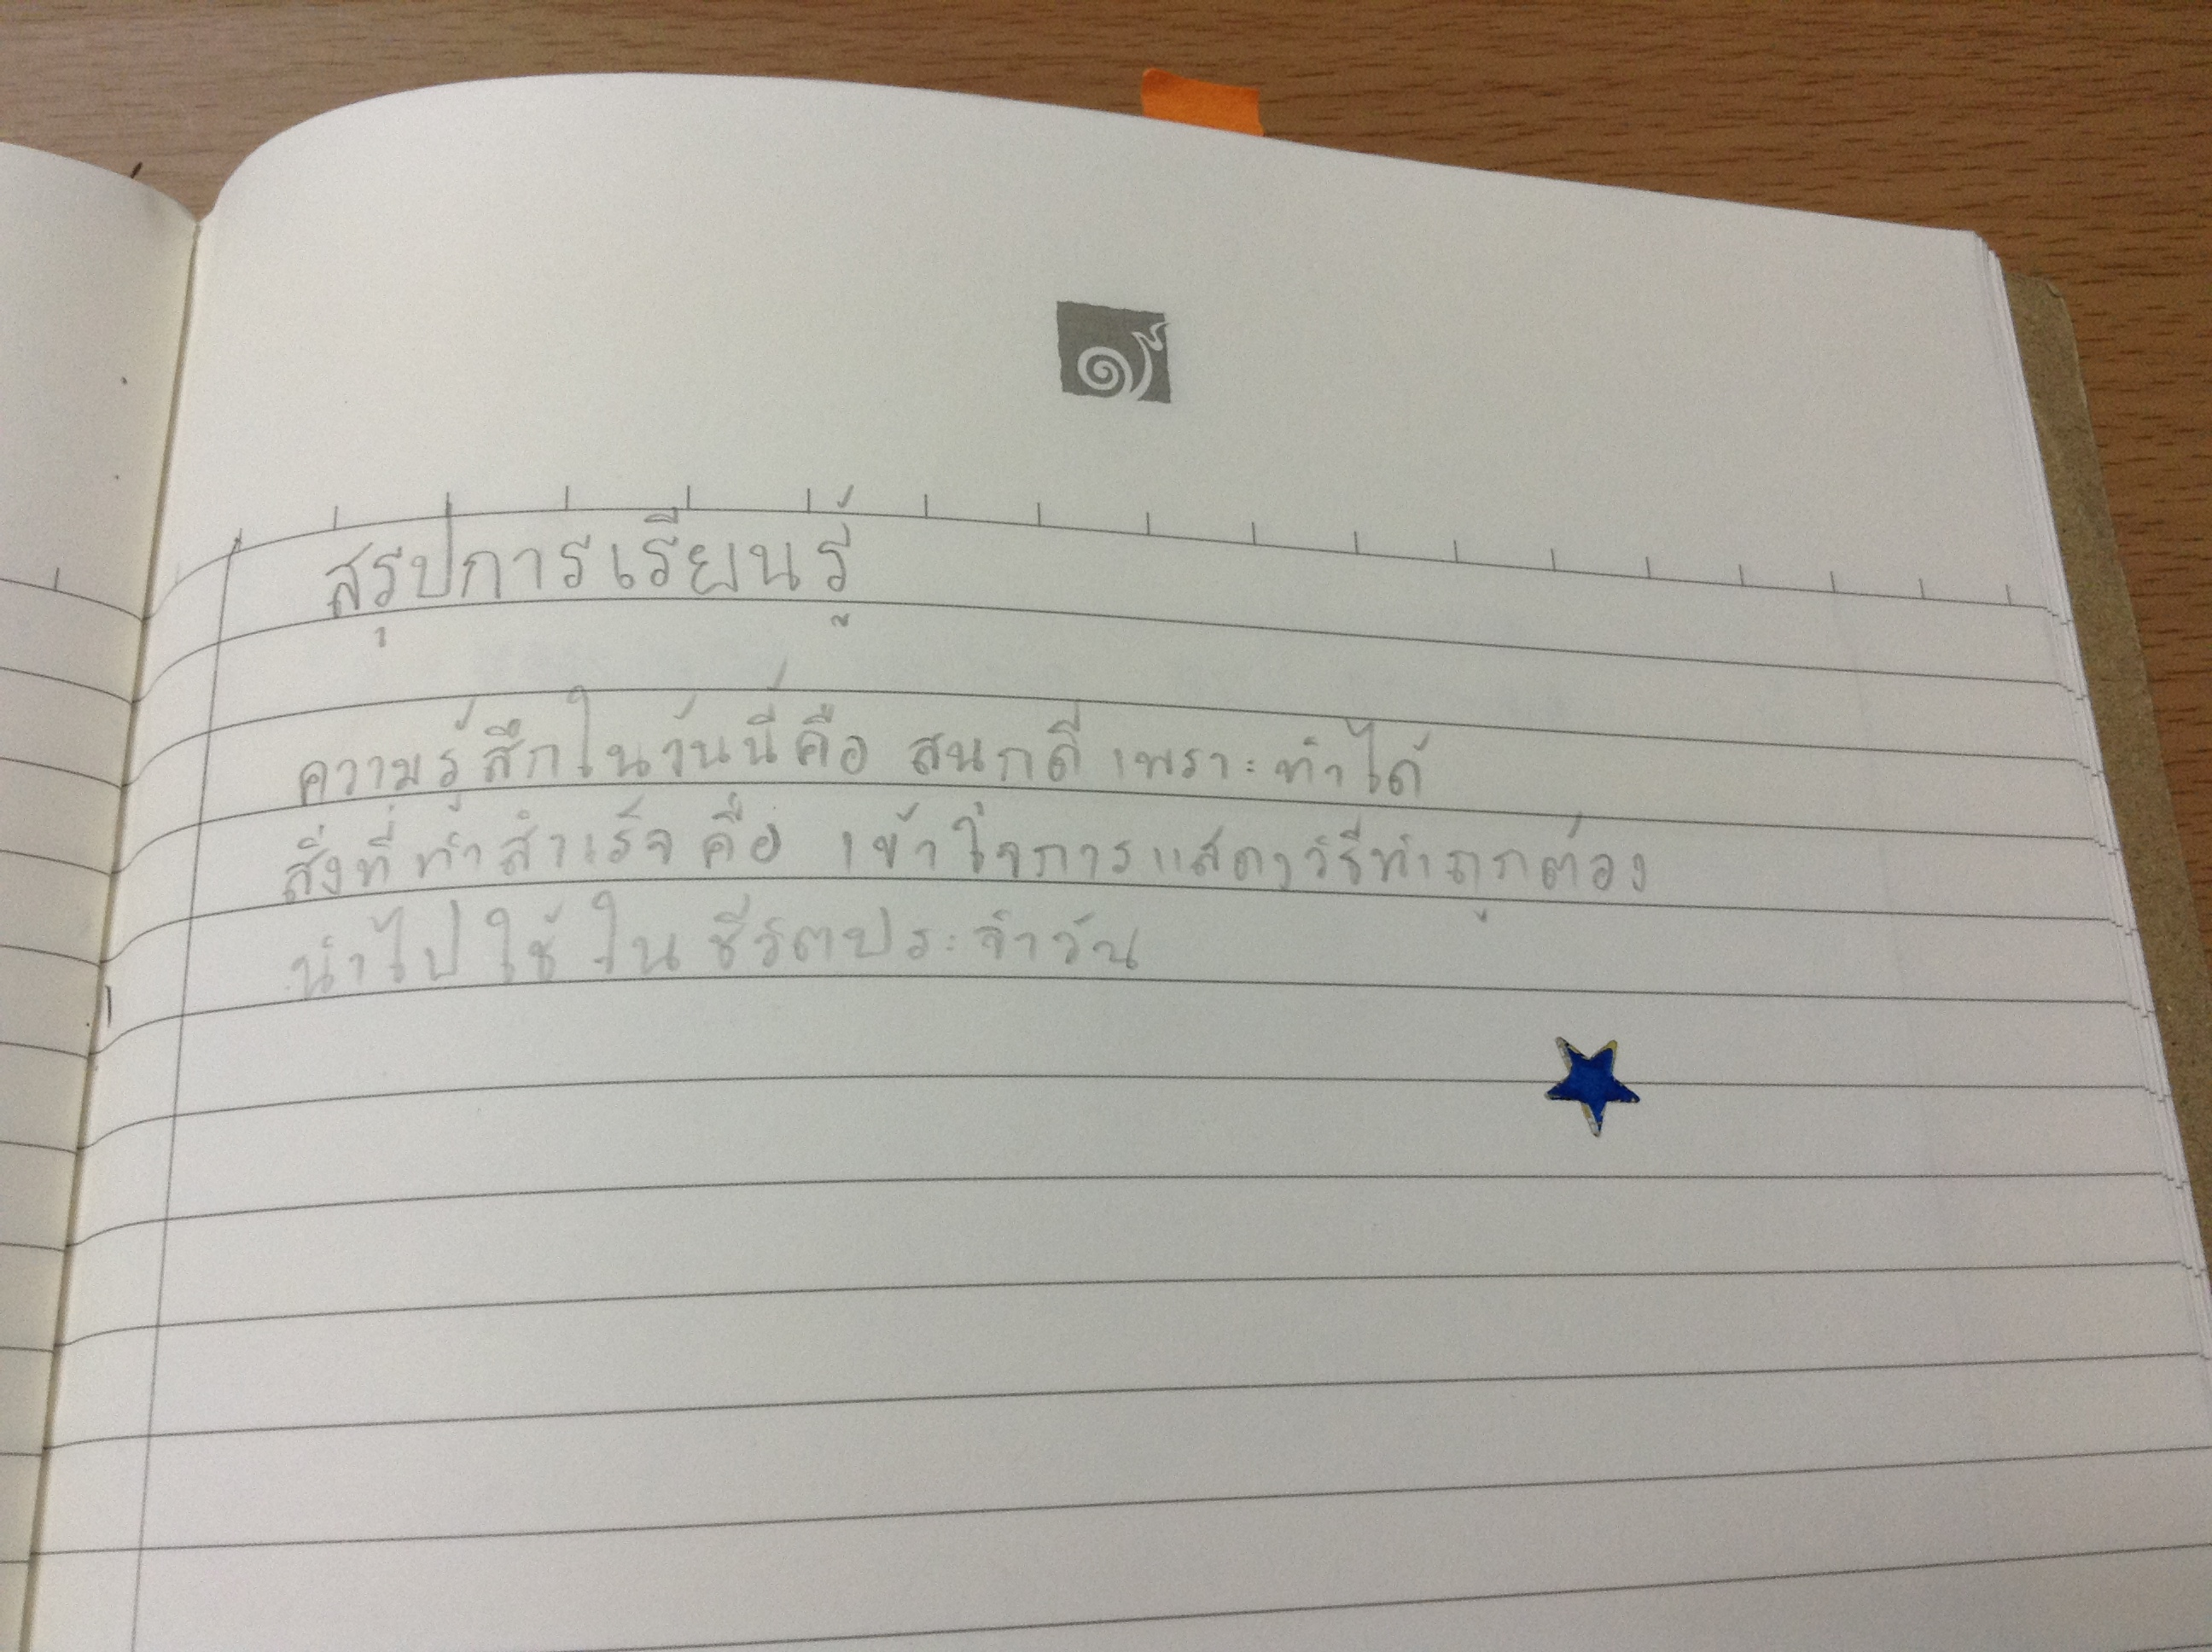 สรุปการเรียนรู้
ความรู้สึกในวันนี้คือ สนกดี เพราะทำได้
สิ่งที่ทำสำเร็จคือ เข้าใจการแสดงวิธีทำถูกต้อง
นำไปใช้ในชีวิตประจำวัน